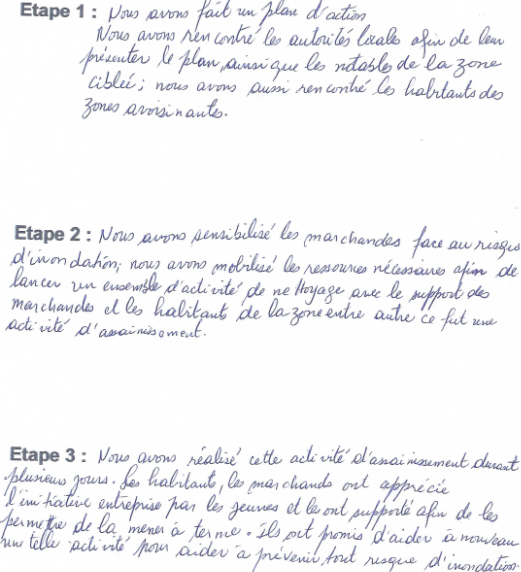 Etape 1 : Nous avons fait un plan d'action
Nous avons rencontré les autorités locales afin de leur
présenter le plan, ainsi que les notables de la zone
ciblée; nous avons aussi rencontré les habitants des
zones avoisinantes.
Etape 2 : Nous avons sensibilisé les marchandes face au risques
d'inondation; nous avons mobilisé les ressources nécessaires afin de
lancer un ensemble d'activité de nettoyage avec le support des
marchands et les habitants de la zone entre autre ce fut une
activité d'assainissement.
Etape 3 : Nous avons réalisé cette activité d'assainissement durant
plusieurs jours. Les habitants, les marchands ont apprécié
l'initiative entreprise par les jeunes et le ont supporté afin de les
permettre de la mener à terme. Ils ont promis d'aider à nouveau
une telle activité pour aider à prévenir tout risque d'inondation.